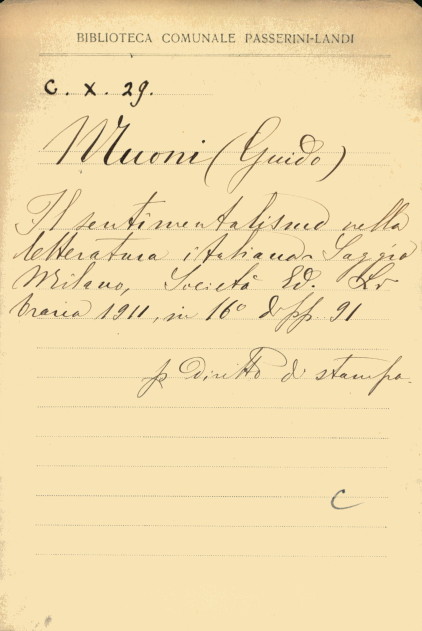 BIBLIOTECA COMUNALE PASSERINI-LANDI
C. X. 29.
Muoni (Guido)
Il sentimentalismo nella
letteratura italiana. Saggio
Milano, Società Ed. Li
braria 1911, in 16° di pp. 91
p. diritto di stampa.
C